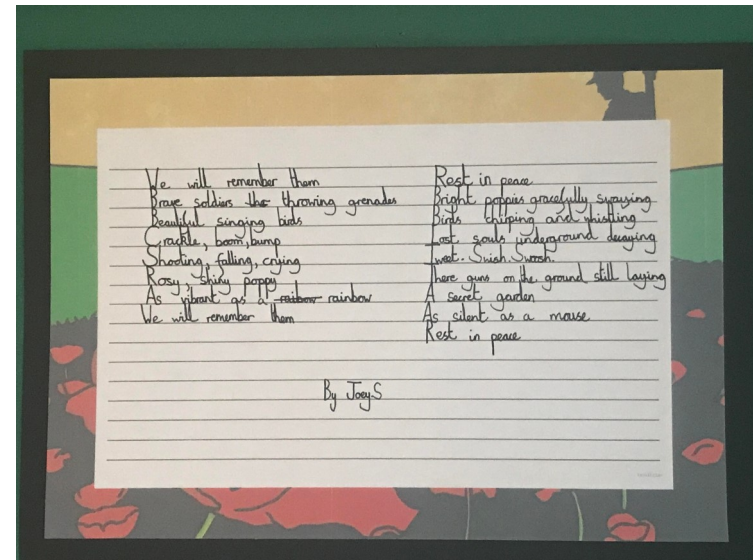 We will remember them
Brave soldiers the throwing grenades
Beautiful singing birds
Crackle, boom, bump
Shooting, falling, crying
Rosy, shiny poppy
As vibrant as a raibow rainbow
We will remember them
Rest in peace
Bright poppies gracefully swaying
Birds chirping and whistling
Lost souls underground decaying
Tweet. Swish. Swoosh.
There guns on the ground still laying
A secret garden
As silent as a mouse
Rest in peace
By Joey.S